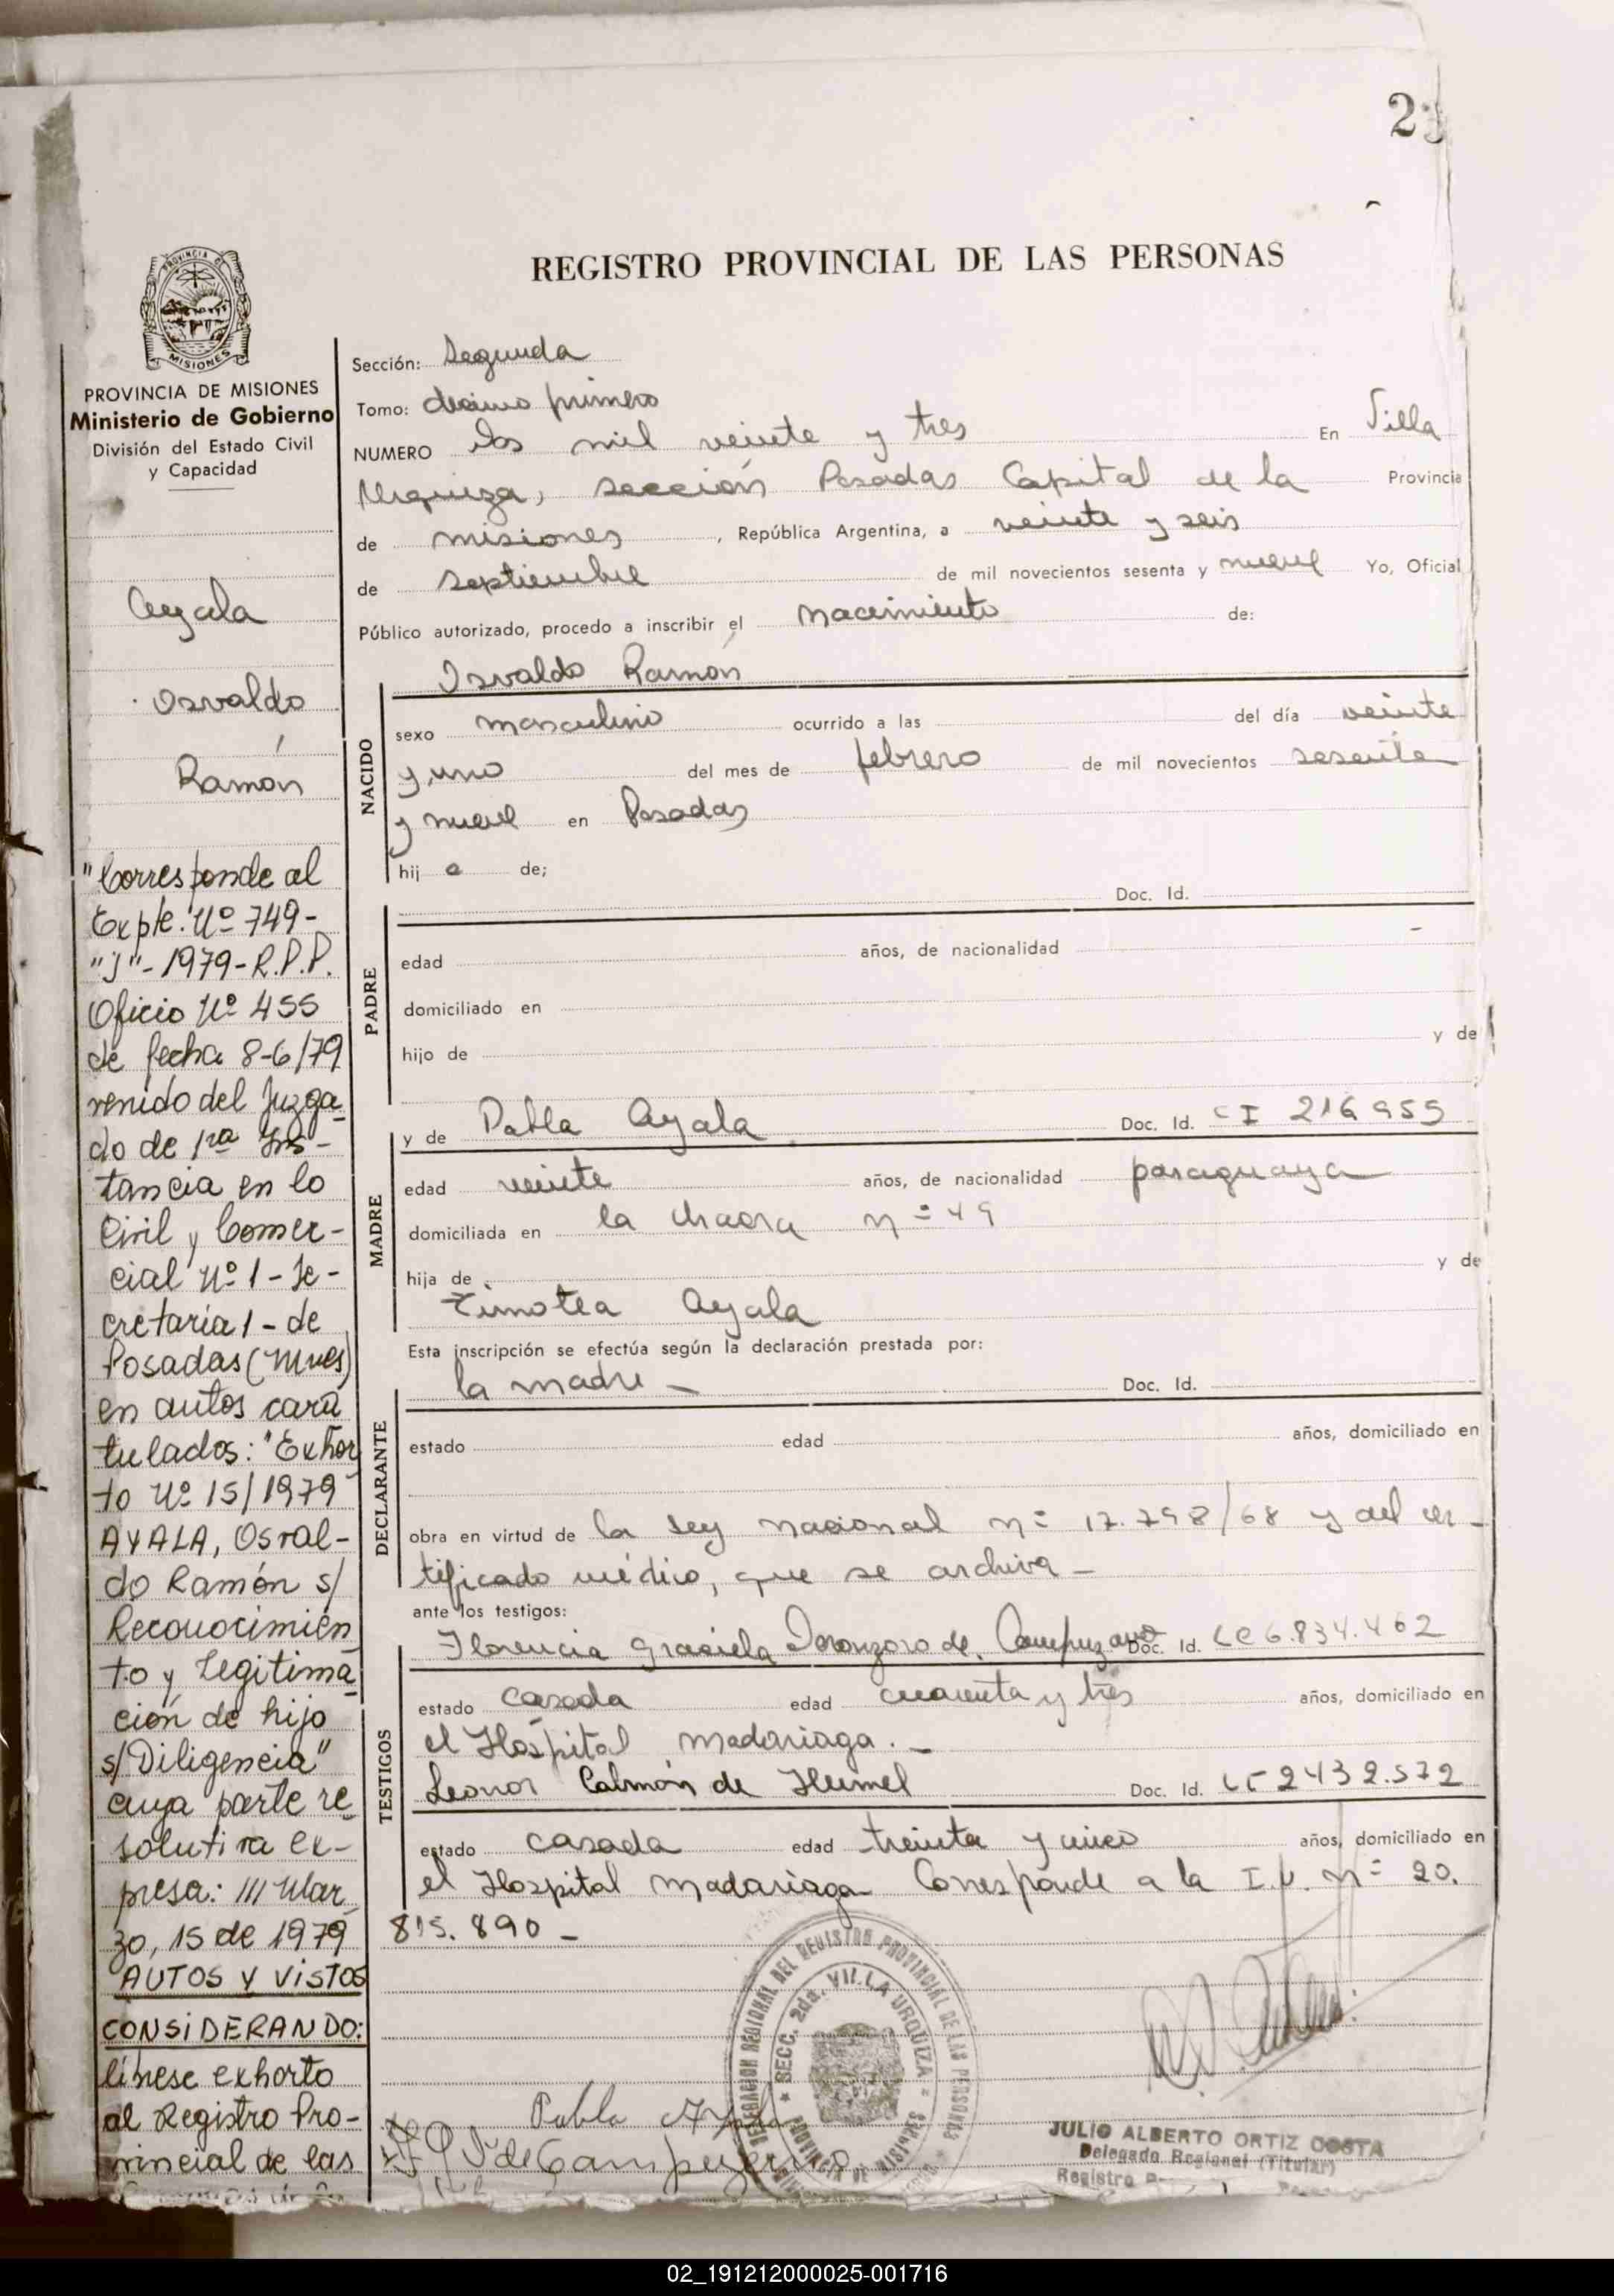 2
REGISTRO PROVINCIAL DE LAS PERSONAS
MISIONES
PROVINCIA DE MISIONES
Ministerio de Gobierno
División del Estado Civil
y Capacidad
Ayala
Osvaldo
Ramón
"Corresponde al
Expte. Nº 749-
"J"-1979-R.P.P.
Oficio Nº 455
de fecha 8-6/79
venido del Juzga-
do de 1ra Ins-
tancia en lo
Civil y Comer-
cial Nº 1 - Se-
cretaría 1 - de
Posadas (Mnes)
en autos cara-
tulados: "Exhor
to Nº 15/1979
AYALA, Osval-
do Ramón s/
Reconocimien
to y Legitima-
ción de hijo
s/Diligencia"
cuya parte re-
solutiva ex-
presa: /// Mar-
zo, 15 de 1979
AUTOS Y VISTOS
CONSIDERANDO:
líbrese exhorto
al Registro Pro-
vincial de las
Sección: Segunda
Tomo: décimo primero
NUMERO dos mil veinte y tres En Villa
Urquiza, sección Posadas Capital de la Provincia
de misiones, República Argentina, a veinte y seis
de septiembre de mil novecientos sesenta y nueve Yo, Oficial
Público autorizado, procedo a inscribir el nacimiento de:
Osvaldo Ramón
NACIDO
sexo masculino ocurrido a las del día veinte
y uno del mes de febrero de mil novecientos sesenta
y nueve en Posadas
hij o de;
Doc. Id.
PADRE
edad años, de nacionalidad
domiciliado en
hijo de y de
y de Pabla Ayala Doc. Id. CI 216955
MADRE
edad veinte años, de nacionalidad paraguaya
domiciliada en la chacra nº 49
hija de y de
Timotea Ayala
Esta inscripción se efectúa según la declaración prestada por:
la madre - Doc. Id.
DECLARANTE
estado edad años, domiciliado en
obra en virtud de la ley nacional nº 17.798/68 y del cer-
tificado médico, que se archiva -
ante los testigos:
Florencia Graciela de Campuzano Doc. Id. LC 6.834.462
TESTIGOS
estado casada edad cuarenta y tres años, domiciliado en
el Hospital madariaga. -
Leonor Calmón de Humel Doc. Id. 2432.572
estado casada edad treinta y cinco años, domiciliado en
el Hospital madariaga Corresponde a la nº 20.
815.890 -
DELEGACION REGIONAL DEL REGISTRO PROVINCIAL DE LAS PERSONAS
SECC. 2da. VILLA URQUIZA
PROVINCIA DE MISIONES
Pabla Ayala
de Campuzano
JULIO ALBERTO ORTIZ COSTA
Delegado Regional (Titular)
Registro
02_191212000025-001716